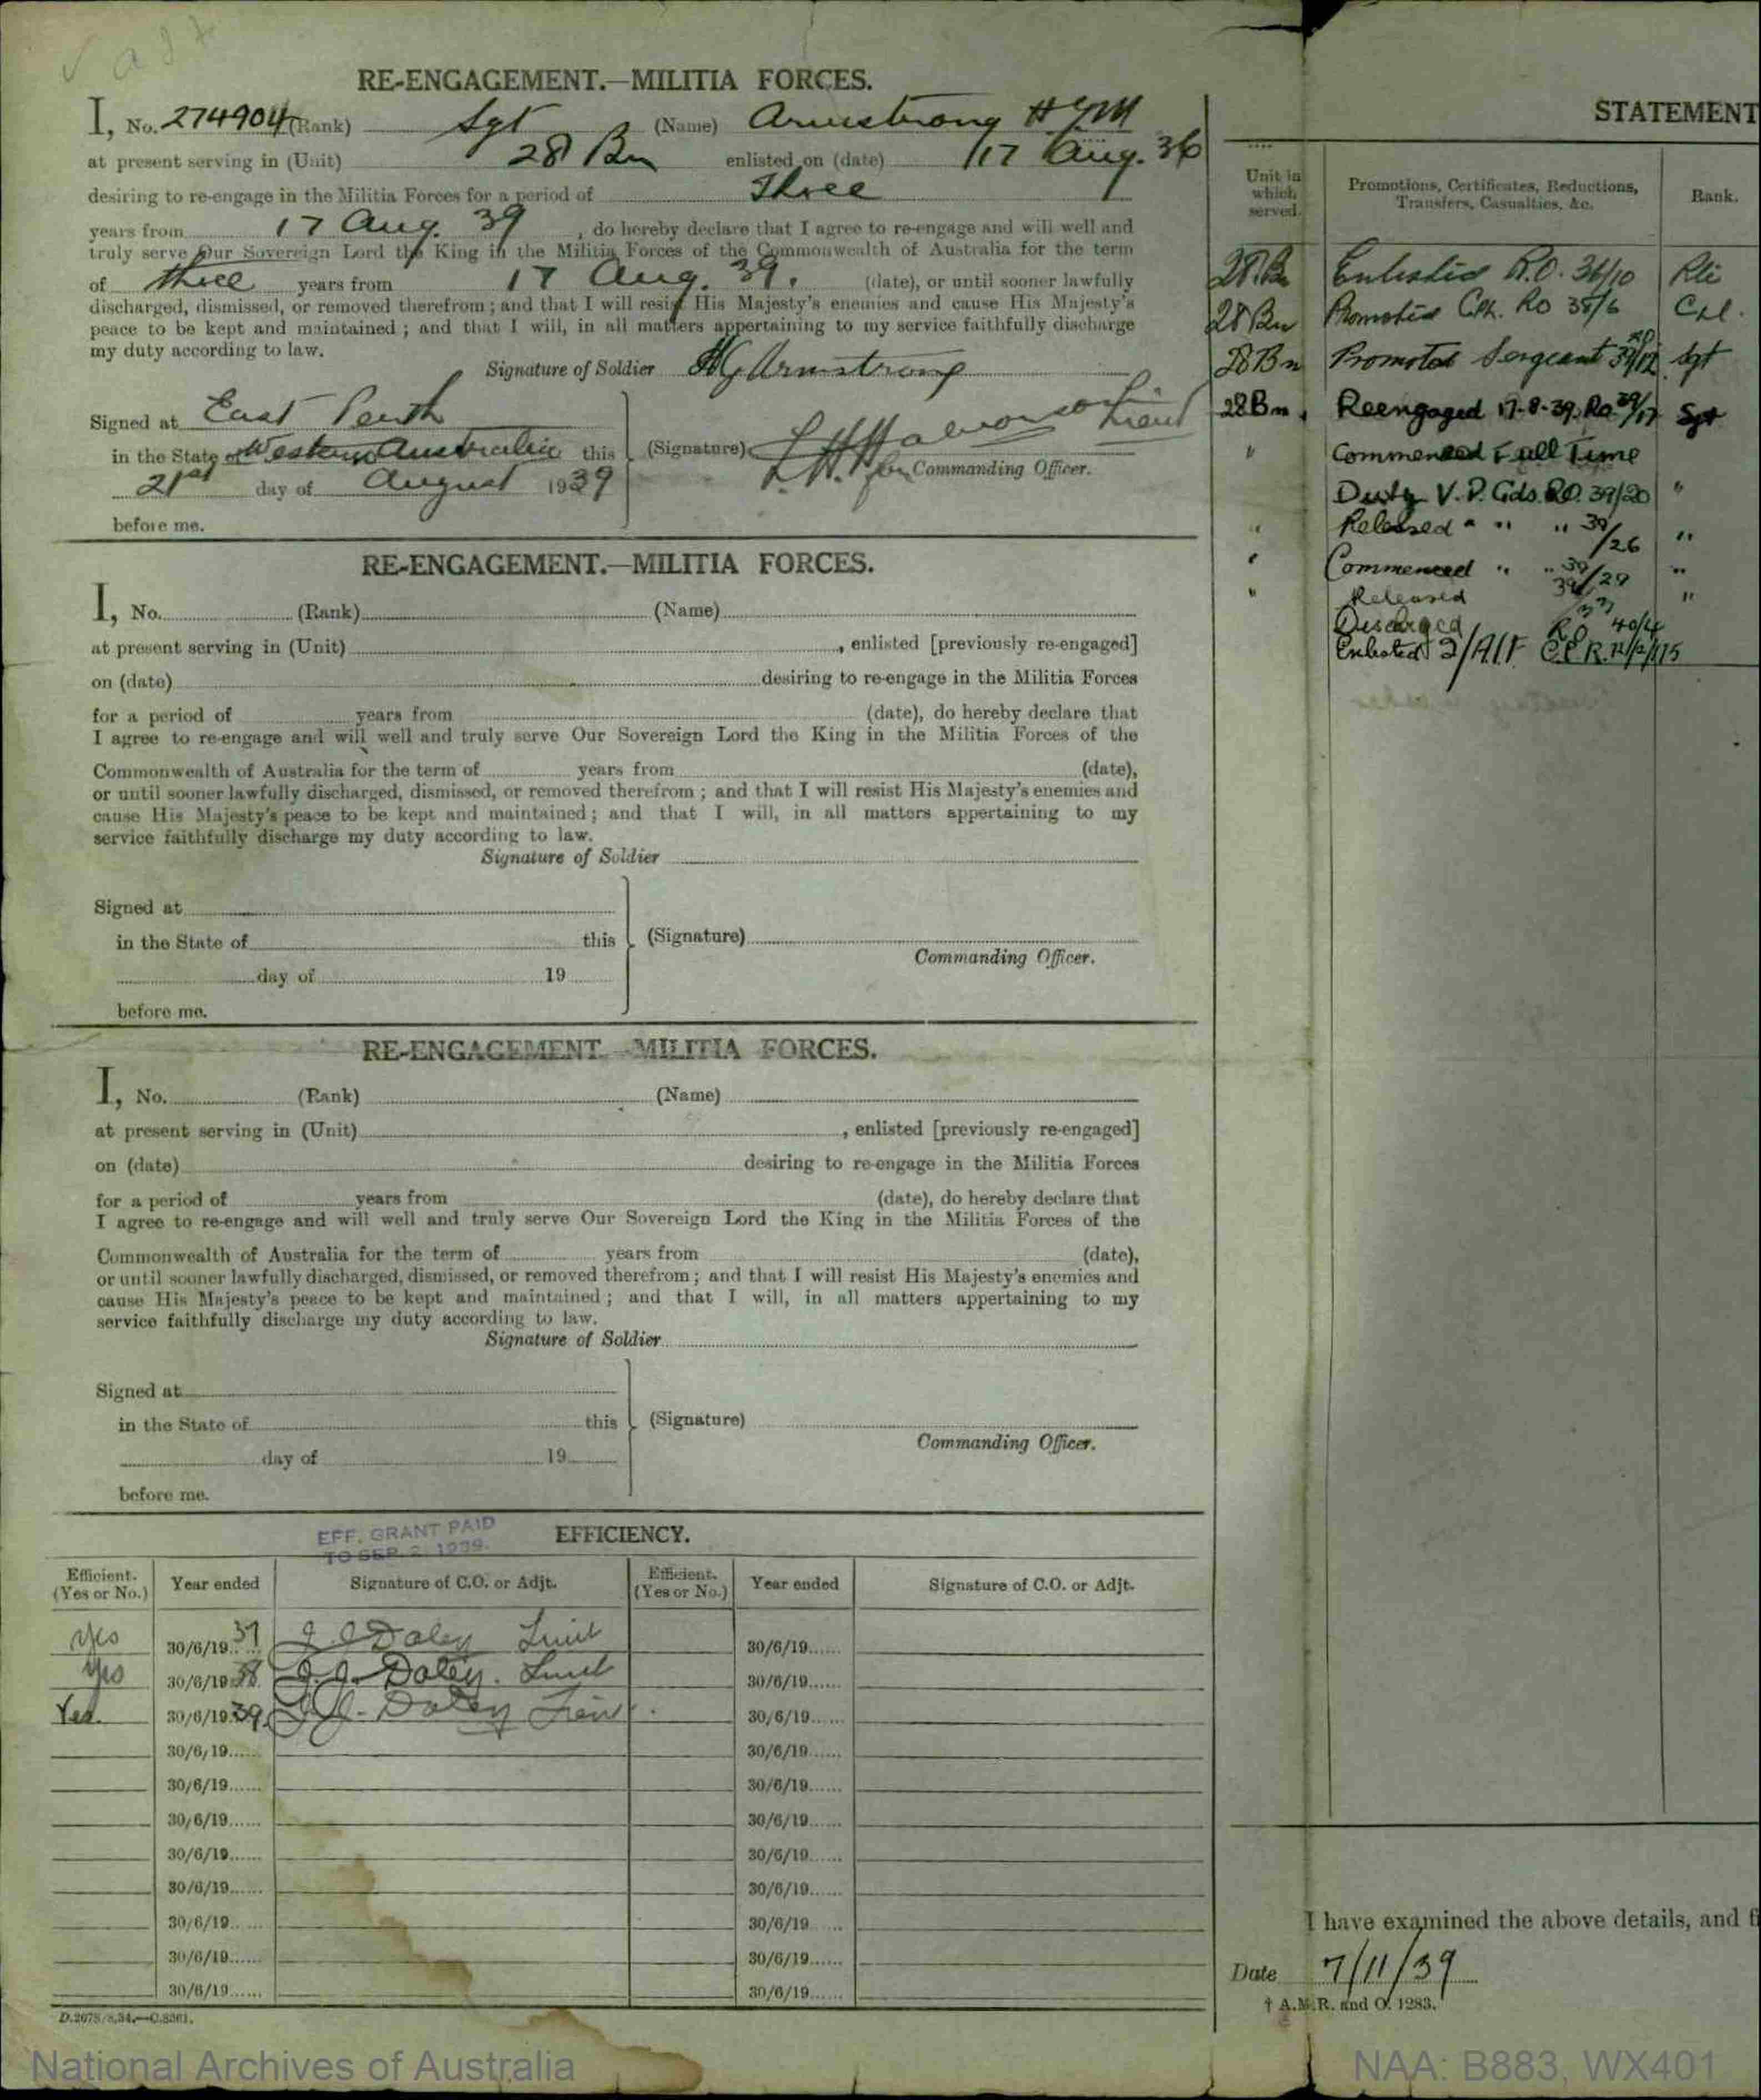 RE-ENGAGEMENT.—MILITIA FORCES.
I, No. 274904 (Rank) Sgt (Name) Armstrong H G M
at present serving in (Unit) 28 Bn enlisted on (date) 17 Aug. 36
desiring to re-engage in the Militia Forces for a period of Three
years from 17 Aug. 39, do hereby declare that I agree to re-engage and will well and
truly serve Our Sovereign Lord the King in the Militia Forces of the Commonwealth of Australia for the term
of three years from 17 Aug. 39. (date), or until sooner lawfully
discharged, dismissed, or removed therefrom; and that I will resist His Majesty's enemies and cause His Majesty's
peace to be kept and maintained; and that I will, in all matters appertaining to my service faithfully discharge
my duty according to law.
Signature of Soldier HG Armstrong
Signed at East Perth
in the State of Western Australia this
21st day of August 1939
before me.
(Signature) Lieut
for Commanding Officer.
RE-ENGAGEMENT.—MILITIA FORCES.
I, No. (Rank) (Name)
at present serving in (Unit) , enlisted [previously re-engaged]
on (date) desiring to re-engage in the Militia Forces
for a period of years from (date), do hereby declare that
I agree to re-engage and will well and truly serve Our Sovereign Lord the King in the Militia Forces of the
Commonwealth of Australia for the term of years from (date),
or until sooner lawfully discharged, dismissed, or removed therefrom; and that I will resist His Majesty's enemies and
cause His Majesty's peace to be kept and maintained; and that I will, in all matters appertaining to my
service faithfully discharge my duty according to law.
Signature of Soldier
Signed at
in the State of this
day of 19
before me.
(Signature)
Commanding Officer.
RE-ENGAGEMENT.—MILITIA FORCES.
I, No. (Rank) (Name)
at present serving in (Unit) , enlisted [previously re-engaged]
on (date) desiring to re-engage in the Militia Forces
for a period of years from (date), do hereby declare that
I agree to re-engage and will well and truly serve Our Sovereign Lord the King in the Militia Forces of the
Commonwealth of Australia for the term of years from (date),
or until sooner lawfully discharged, dismissed, or removed therefrom; and that I will resist His Majesty's enemies and
cause His Majesty's peace to be kept and maintained; and that I will, in all matters appertaining to my
service faithfully discharge my duty according to law.
Signature of Soldier
Signed at
in the State of this
day of 19
before me.
(Signature)
Commanding Officer.
EFF. GRANT PAID
TO SEP. 2. 1939.
EFFICIENCY.
Efficient. (Yes or No.) Year ended Signature of C.O. or Adjt. Efficient. (Yes or No.) Year ended Signature of C.O. or Adjt.
Yes 30/6/19 37 J. J. Daley Lieut 30/6/19
Yes 30/6/19 38 J. J. Daley. Lieut 30/6/19
Yes 30/6/19 39 J. J. Daley Lieut 30/6/19
30/6/19 30/6/19
30/6/19 30/6/19
30/6/19 30/6/19
30/6/19 30/6/19
30/6/19 30/6/19
30/6/19 30/6/19
30/6/19 30/6/19
30/6/19 30/6/19
D.2078/8.34.—C.8361.
STATEMENT
Unit in which served. Promotions, Certificates, Reductions, Transfers, Casualties, &c. Rank.
28 Bn Enlisted R.O. 36/10 Rfe
28 Bn Promoted Cpl. RO 38/6 Cpl.
28 Bn Promoted Sergeant RO 39/12 Sgt
28 Bn. Reengaged 17-8-39. Ro 39/17 Sgt
" Commenced Full Time
Duty V.P. Gds. R.O. 39/20 "
" Released " " " 39/26 "
" Commenced " " 39/29 "
" Released 39/33 "
Discharged RO 40/4
Enlisted 2/AIF
I have examined the above details, and f
Date 7/11/39
† A.M.R. and O. 1283.
National Archives of Australia
NAA: B883, WX401